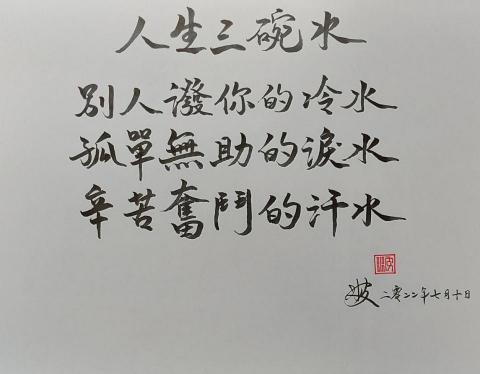 人生三碗水
別人潑你的冷水
孤單無助的淚水
辛苦奮鬥的汗水
二零二二年七月十日